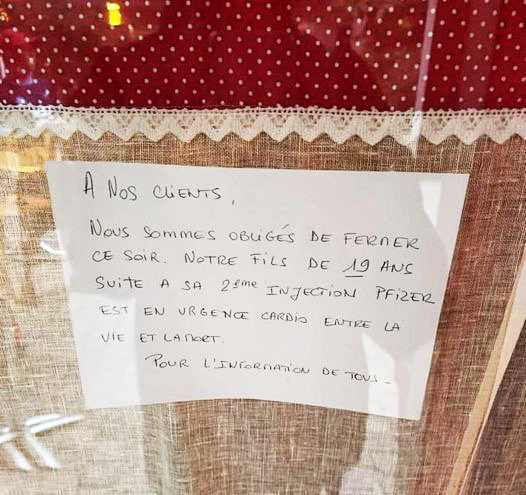 A NOS CLIENTS,
NOUS SOMMES OBLIGÉS DE FERMER
CE SOIR. NOTRE FILS DE 19 ANS
SUITE A SA 2ème INJECTION PFIZER
EST EN URGENCE CARDIO ENTRE LA
VIE ET LA MORT.
POUR L'INFORMATION DE TOUS.